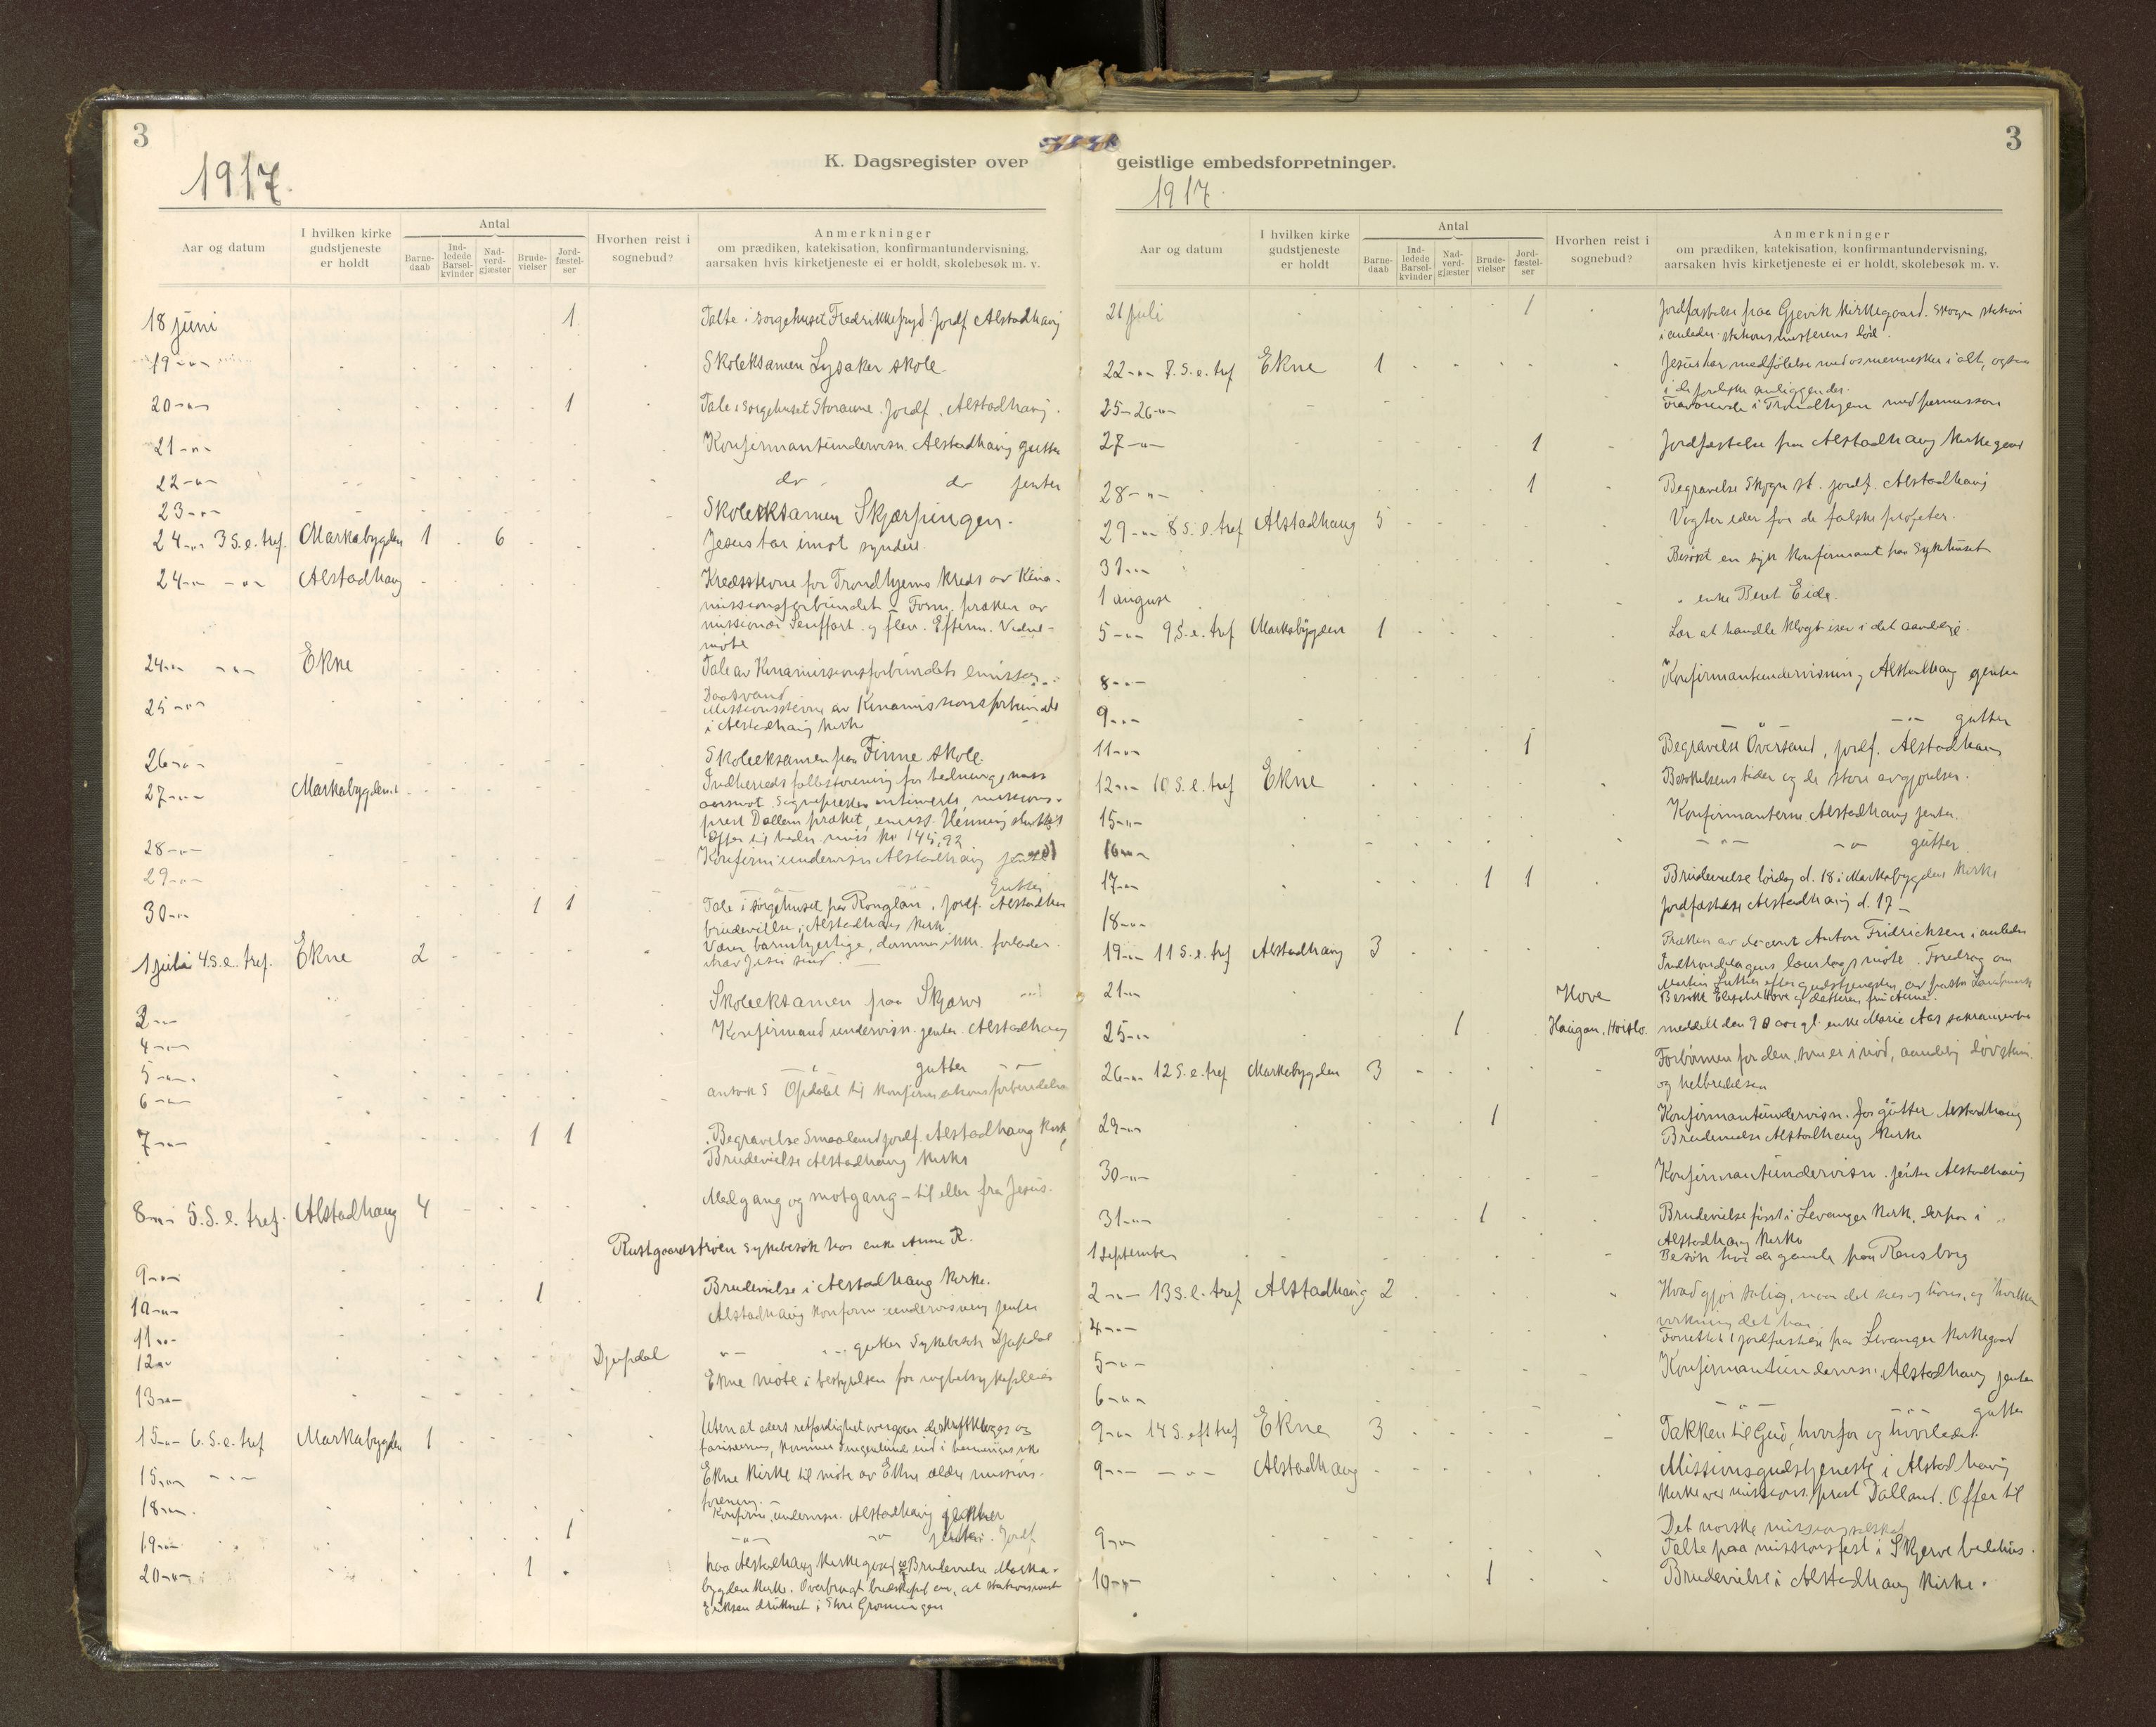 3
1917.
K. Dagsregister over
Aar og datum
I hvilken kirke gudstjeneste er holdt
Antal
Barne-daab
Ind-ledede Barsel-kvinder
Nad-verd-gjæster
Brude-vielser
Jord-fæstel-ser
Hvorhen reist i sognebud?
Anmerkninger
om prædiken, katekisation, konfirmantundervisning,
aarsaken hvis kirketjeneste ei er holdt, skolebesøk m. v.
18 juni 1 Talte i sorgehuset Fredrikkefryd. Jordf Alstadhaug
19-"- Skoleksamen Lysaker skole.
20-"- 1 Tale i sorgehuset Storaune. Jordf. Alstadhaug.
21-"- Konfirmantundervisn. Alstadhaug gutter
22-"- do do jenter
23-"- Skoleeksamen Skjærpingen.
24-"- 3 S. e. tref. Markabygden 1 6 Jesus tar imot syndere.
24-"- -"- Alstadhaug Kredsstevne for Trondhjems kreds av Kina-
missionsforbundet. Form. præken av
missionær Senffart. og flere. Efterm. Vidne-
møte
24-"- -"- Ekne Tale av Kinamissionsforbundets emissær
Daasvand
25-"- Missionsstevne av Kinamissionsforbundet
i Alstadhaug kirke
26-"- Skoleeksamen paa Finne skole.
27-"- Markabygden Indherreds fællesforening for hedningemiss
aarsmøt. Sognepresten intimerte, missions-
prest Dalland præket, emiss. Henning sluttet
Offer til hedn. miss kr 145,92
28-"- Konfirm. undervisn Alstadhaug jenter
29-"- -"- Gutter
30-"- 1 1 Tale i sørgehuset paa Ronglan. Jordf. Alstadhau
brudevielse i Alstadhaug kirk
1 juli 4. S. e. tref. Ekne 2 Værer barmhjertige, dømmer ikke. forlader.
krav Jesu sind.
Skoleeksamen paa Skjærve
3-"- Konfirmand undervisn. jenter. Alstadhaug
4-"-
5-"- gutter -"-
6-"- antok S Opdalet til konfirmationsforberedelse
7-"- 1 1 Begravelse Smaaland jordf. Alstadhaug Kirk
Brudevielse Alstadhaug kirke
8-"- 5. S. e. tref. Alstadhaug 4 Medgang og motgang - til eller fra Jesus.
Rustgaardstrøen Sykebesøk hos enke Anne R.
9-"- 1 Brudevielse i Alstadhaug kirke.
10-"- Alstadhaug konfirm. undervisning jenter
11-"-
12-"- Djupdal -"- -"- gutter Sykebesøk Djupdal
13-"- Ekne møte i bestyrelsen for
15-"- 6. S. e. tref Markabygden 1 Uten at eders retfærdighet overgaar de skriftkloges og
farisæernes, kommer I ingenlunde ind i himmeriges rike
15-"- -"- Ekne Kirke til møte av Ekne ældre missions-
forening.
18-"- Konfirm. undervisn. Alstadhaug gutter
19-"- 1 -"- -"- jenter. Jordf
20-"- 1 paa Alstadhaug kirkegaard Brudevielse Marka-
bygden kirke. Overbragt budskapet om, at stationsmest
Eriksen druknet i Store Grønningen
3
geistlige embedsforretninger.
1917.
Aar og datum
I hvilken kirke gudstjeneste er holdt
Antal
Barne-daab
Ind-ledede Barsel-kvinder
Nad-verd-gjæster
Brude-vielser
Jord-fæstel-ser
Hvorhen reist i sognebud?
Anmerkninger
om prædiken, katekisation, konfirmantundervisning,
aarsaken hvis kirketjeneste ei er holdt, skolebesøk m. v.
21 juli 1 Jordfæstelse paa Gjevik kirkegaard. Skogn station
i anledn. stationsmesterens død
22-"- 7. S. e. tref Ekne 1 Jesus har medfølelse med os mennesker i alt, ogsaa
i de jordiske anliggender.
25-26-"- Fraværende i Trondhjem med permission
27-"- 1 Jordfæstelse paa Alstadhaug kirkegaard
28-"- 1 Begravelse Skogn st. jordf. Alstadhaug
29-"- 8 S. e. tref Alstadhaug 5 Vogter eder for de falske profeter.
31-"- Besøkt en syk konfirmant paa Sykehuset
1 august " enke Beret Eide.
5-"- 9 S. e. tref Markabygden 1 Lær at handle klogt især i det aandelige.
8-"- Konfirmantundervisning Alstadhaug jenter
9-"- -"- gutter
11-"- 1 Begravelse Oversand, jordf. Alstadhaug
12-"- 10 S. e. tref Ekne Besøkelsens tider og de store avgjørelser.
15-"- Konfirmanterne Alstadhaug jenter.
16-"- -"- -"- gutter
17-"- 1 1 Brudevielse lørdag d. 18 i Markabygden kirke
Jordfæstelse Alstadhaug d. 17
18-"-
19-"- 11 S. e. tref Alstadhaug 3 Præken av docent Anton Fridrichsen i anledn
Indtrøndelagens laurlagsmøte. Foredrag om
Martin Luther efter gudstjenesten av pastor
21-"- Hove Besøkt Elisabet Hove og datteren fru
25-"- 1 Haugan, Hoislo. meddelt den 90 aar gl. enke Marie Aas sakramentet
26-"- 12 S. e. tref Markabygden 3 Forbønnen for den, som er i nød, aandelig døvstum
og helbredelsen
29-"- 1 Konfirmantundervisn. for gutter Alstadhaug
Brudevielse Alstadhaug kirke
30-"- Konfirmantundervisn. jenter Alstadhaug
31-"- 1 Brudevielse først i Levanger kirk, derpaa i
Alstadhaug kirke
1 September Besøk hos de gamle paa Rensberg
2-"- 13 S. e. tref Alstadhaug 2 Hvad gjør salig, naar det sees og høres, og hvilken
virkning det har.
4-"- Forrettet 1 jordfæstelse paa Levanger kirkegaard
5-"- Konfirmantundervisn. Alstadhaug jenter
6-"- -"- -"- gutter
9-"- 14 S. eft tref Ekne 3 Takken til Gud, hvorfor og hvorledes.
9-"- -"- Alstadhaug Missionsgudstjeneste i Alstadhaug
kirke ved missions.prest Dalland. Offer til
Det norske missionsselskap
9-"- Talte paa missionsfest i Skjerve bedehus.
10-"- 1 Brudevielse i Alstadhaug kirke.